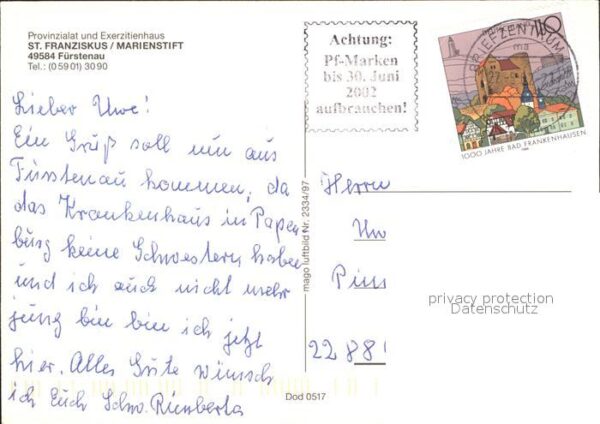 Provinzialat und Exerzitienhaus
ST. FRANZISKUS / MARIENSTIFT
49584 Fürstenau
Tel.: (0 59 01) 30 90
Achtung:
Pf-Marken
bis 30. Juni
2002
aufbrauchen!
BRIEFZENTRUM
110
1000 JAHRE BAD FRANKENHAUSEN
Lieber Uwe!
Ein Gruß soll nun aus
Fürstenau kommen, da
das Krankenhaus in Papen
burg keine Schwestern haben
und ich auch nicht mehr
jung bin bin ich jetzt
hier. Alles Gute wünsch
ich Euch Schw. Rienberta
mago luftbild Nr. 2334/97
Dod 0517
Herrn
Uw
Pinn
22 88
privacy protection
Datenschutz